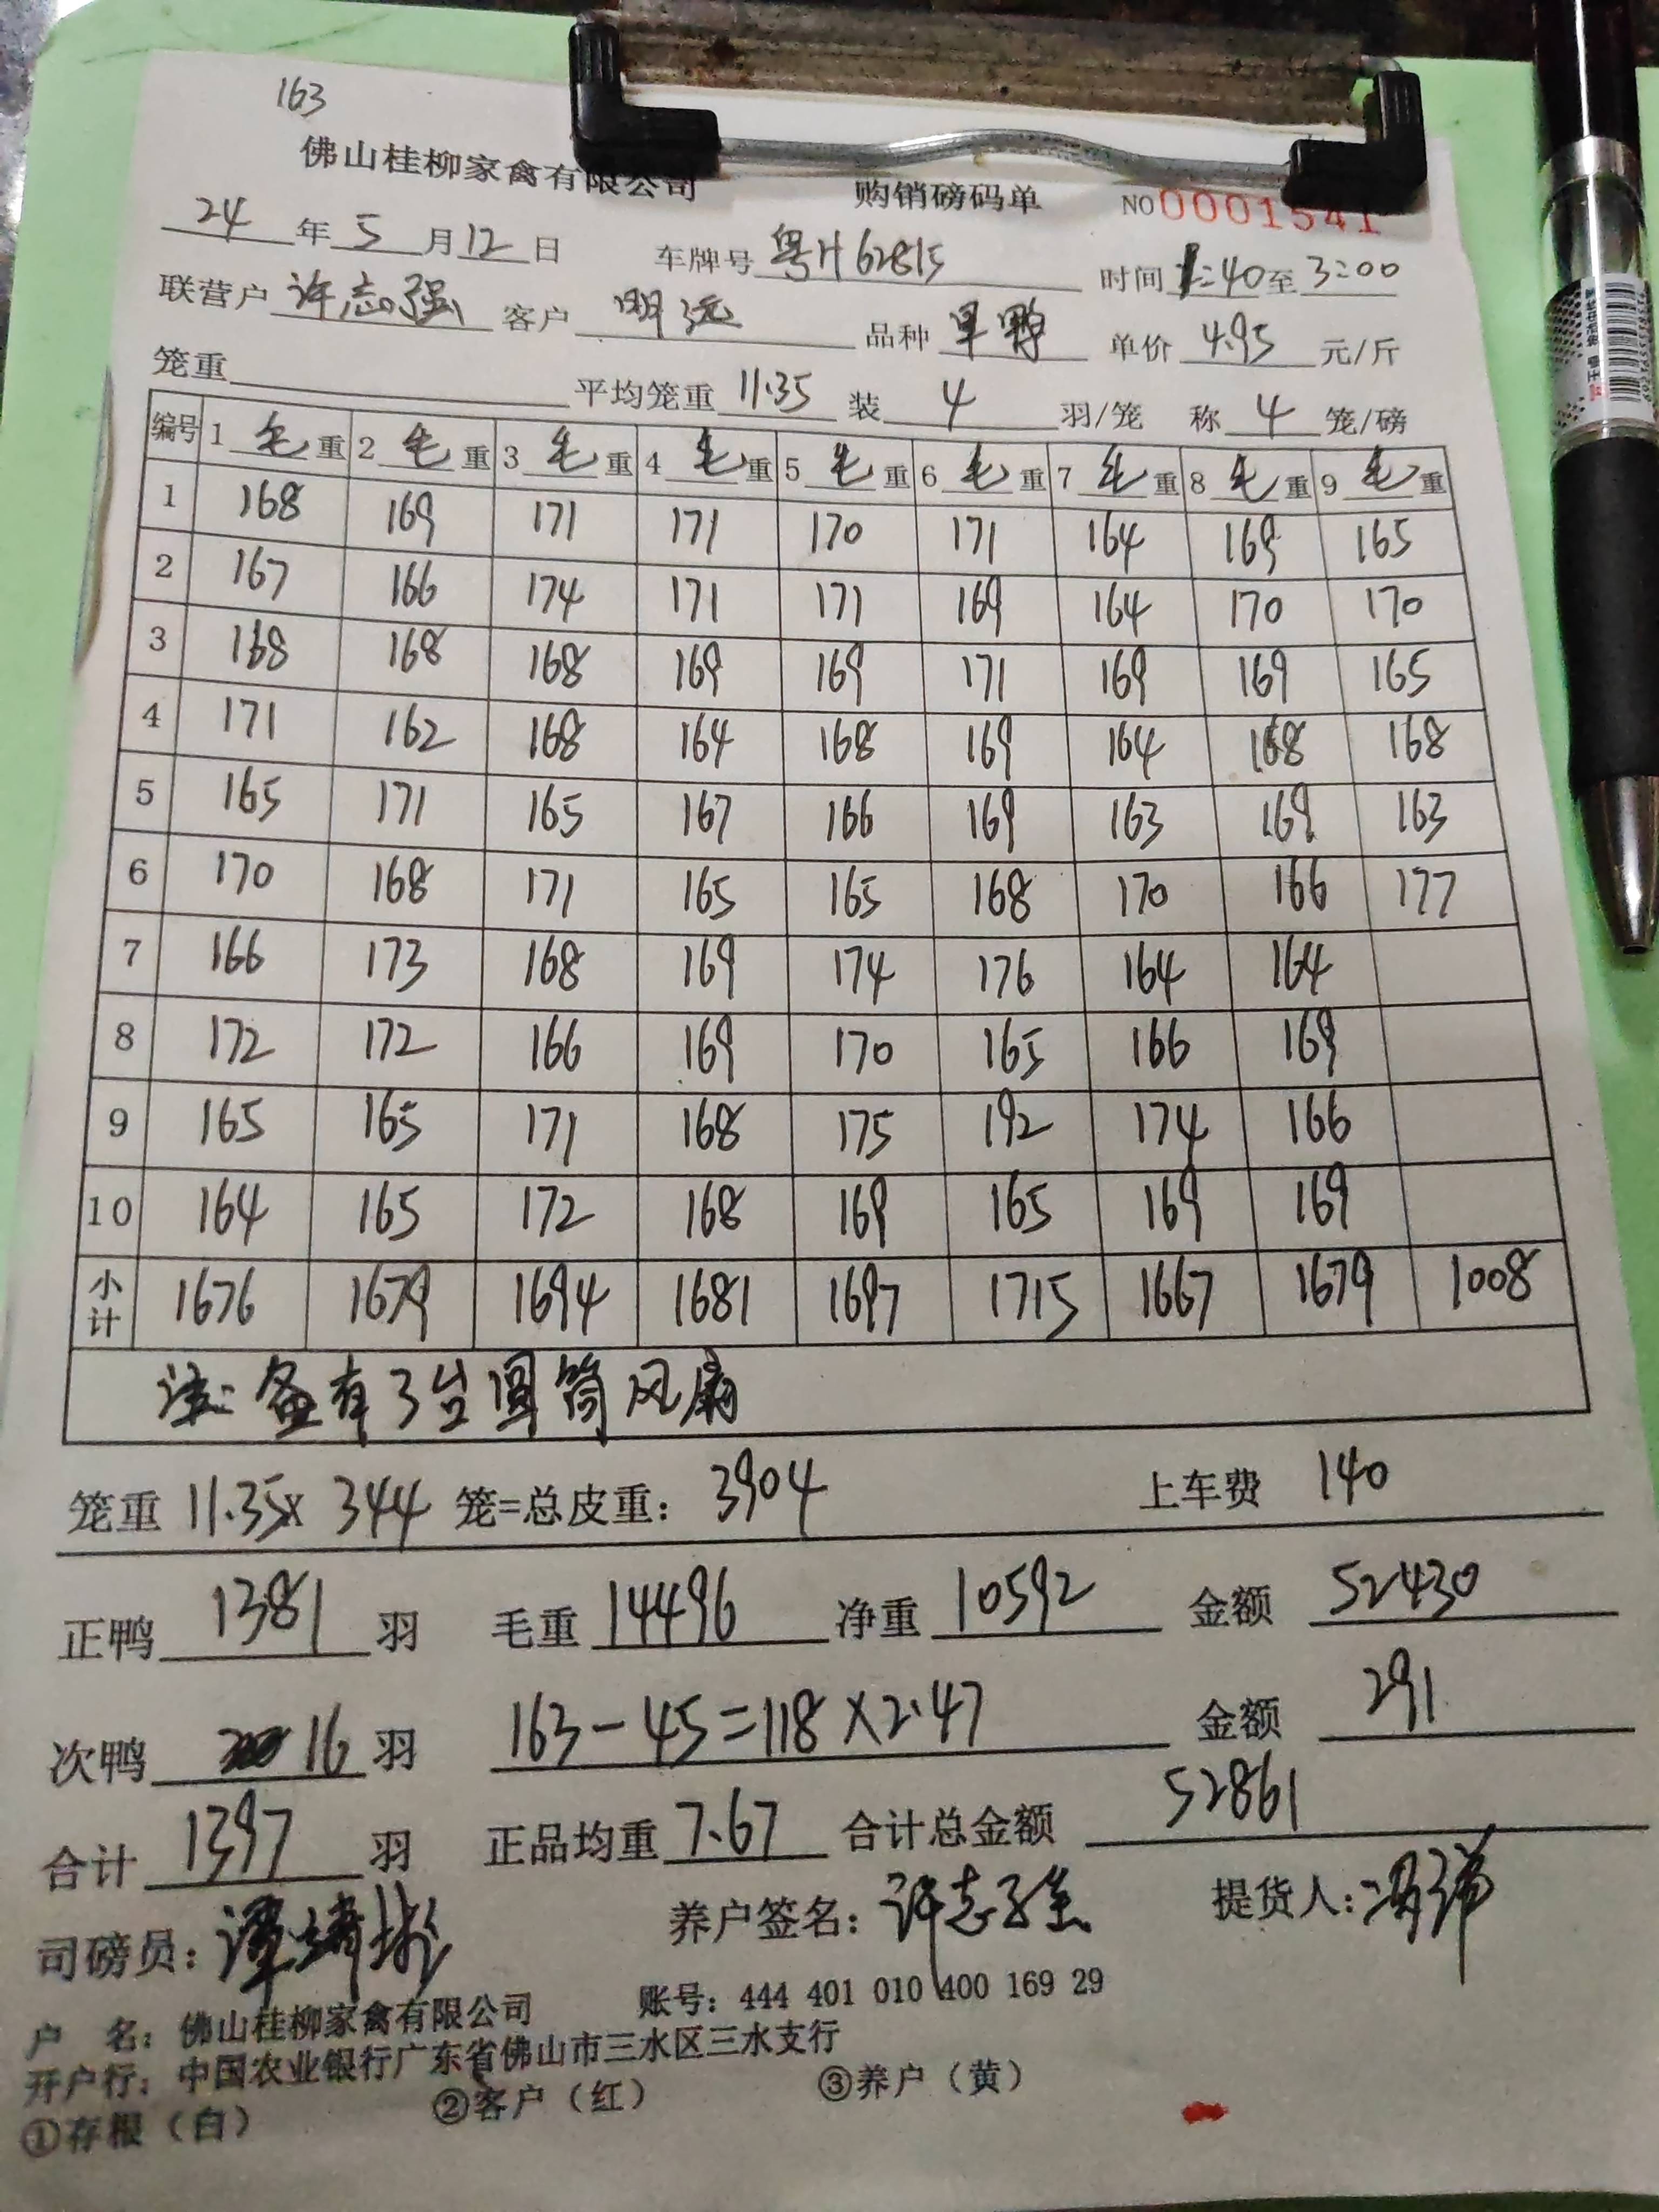 163
佛山桂柳家禽有限公司 购销磅码单 NO 0001541
24年5月12日 车牌号 粤H62815 时间 1:40至3:00
联营户 许志强 客户 明远 品种 旱鸭 单价 4.95 元/斤
笼重 平均笼重 11.35 装 4 羽/笼 称 4 笼/磅
编号 1 毛重 2 毛重 3 毛重 4 毛重 5 毛重 6 毛重 7 毛重 8 毛重 9 毛重
1 168 169 171 171 170 171 164 169 165
2 167 166 174 171 171 169 164 170 170
3 168 168 168 169 169 171 169 169 165
4 171 162 168 164 168 169 164 168 168
5 165 171 165 167 166 169 163 169 163
6 170 168 171 165 165 168 170 166 177
7 166 173 168 169 174 176 164 164
8 172 172 166 169 170 165 166 169
9 165 165 171 168 175 192 174 166
10 164 165 172 168 169 165 169 169
小计 1676 1679 1694 1681 1697 1715 1667 1679 1008
注:备有3台圆筒风扇
笼重 11.35x 344 笼=总皮重: 3904 上车费 140
正鸭 1381 羽 毛重 14496 净重 10592 金额 52430
次鸭 16 羽 163-45=118×2.47 金额 291
合计 1397 羽 正品均重 7.67 合计总金额 52861
司磅员: 养户签名: 许志强 提货人:
户 名: 佛山桂柳家禽有限公司 账号: 444 401 010 400 169 29
开户行: 中国农业银行广东省佛山市三水区三水支行
①存根(白) ②客户(红) ③养户(黄)